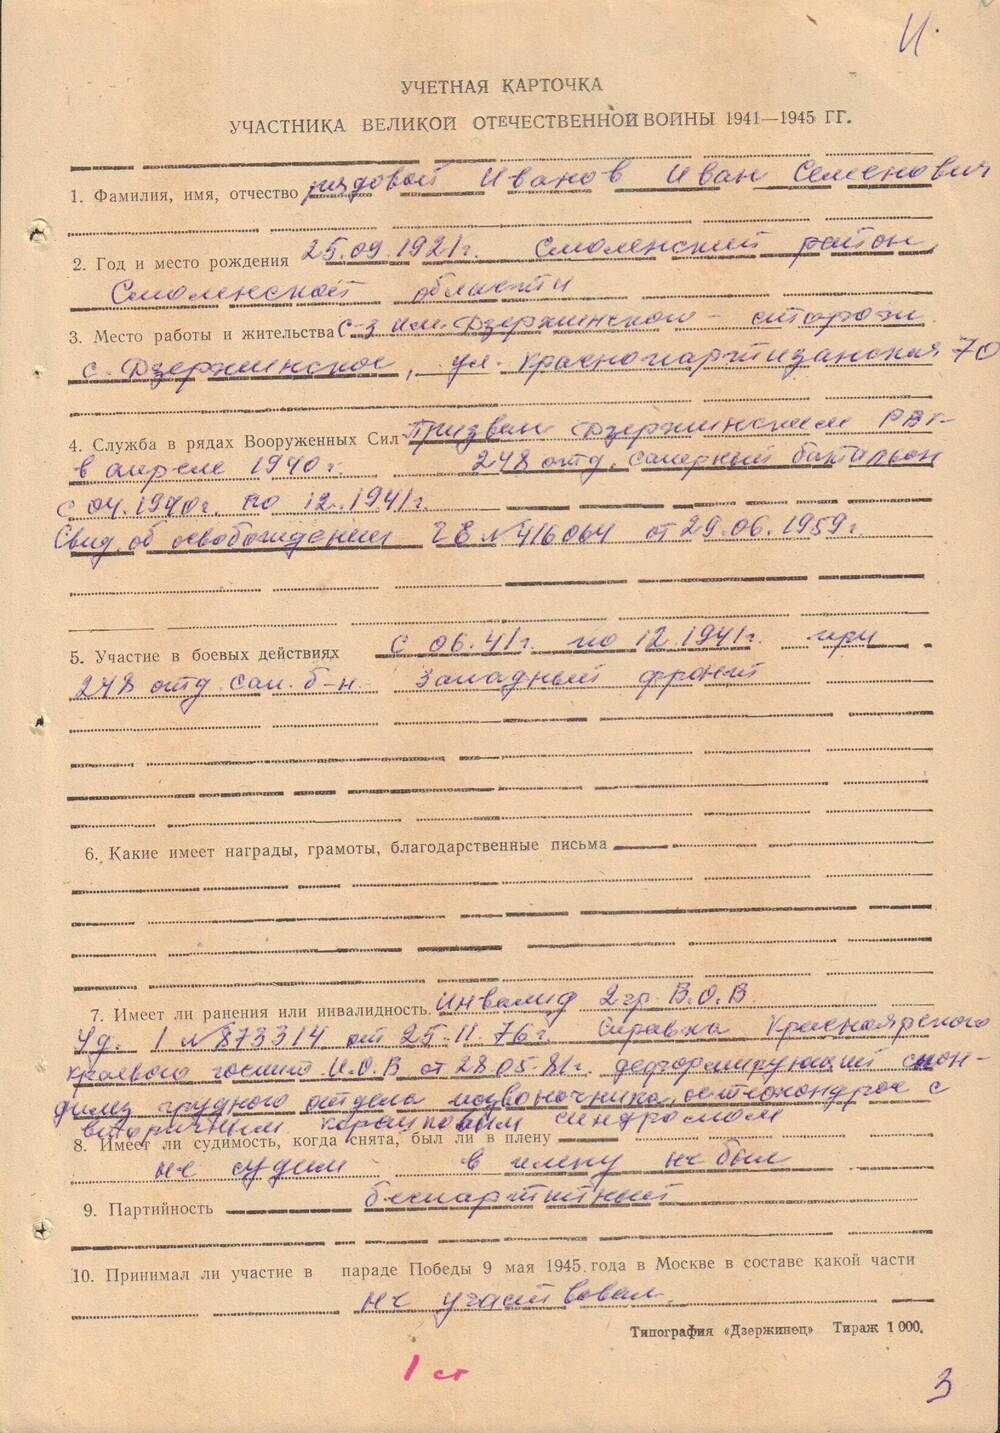 И.
УЧЕТНАЯ КАРТОЧКА
УЧАСТНИКА ВЕЛИКОЙ ОТЕЧЕСТВЕННОЙ ВОЙНЫ 1941—1945 ГГ.
1. Фамилия, имя, отчество рядовой Иванов Иван Семенович
2. Год и место рождения 25.09.1921г. Смоленский район
Смоленской области
3. Место работы и жительства с-з им. Дзержинского - сторож
с. Дзержинское, ул. Краснопартизанская 70
4. Служба в рядах Вооруженных Сил Призван Дзержинским РВК
в апреле 1940г. 248 отд. саперный батальон
с 04.1940г. по 12.1941г.
Свид. об освобождении ГЕ № 416064 от 29.06.1959г.
5. Участие в боевых действиях с 06.41г. по 12.1941г. при
248 отд. сап. б-н. Западный фронт
6. Какие имеет награды, грамоты, благодарственные письма
7. Имеет ли ранения или инвалидность. инвалид 2 гр. В.О.В.
Уд. 1 № 873314 от 25.11.76г. Справка Красноярского
краевого госпит. И.О.В от 28.05.81г. деформирующий спон-
дилез грудного отдела позвоночника, остеохондроз с
вторичным корешковым синдромом
8. Имеет ли судимость, когда снята, был ли в плену
не судим в плену не был
9. Партийность беспартийный
10. Принимал ли участие в параде Победы 9 мая 1945 года в Москве в составе какой части
не участвовал.
Типография «Дзержинец» Тираж 1 000.
1 ст
3